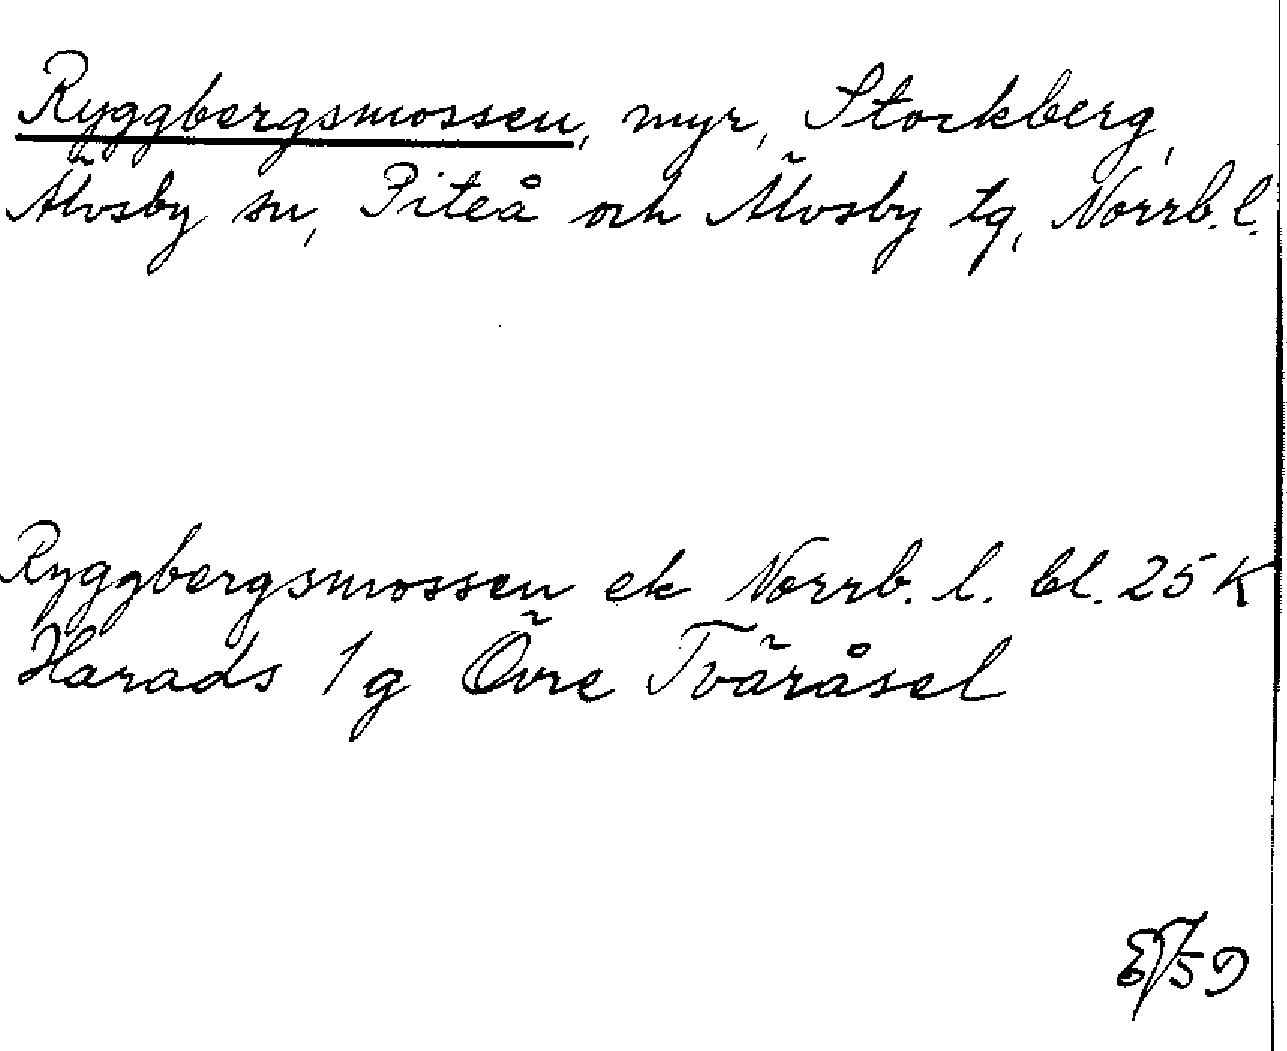 Ryggbergsmossen, myr, Stockberg,
Älvsby sn, Piteå och Älvsby tg, Norrb. l.
Ryggbergsmossen ek Norrb. l. bl. 25 K
Harads 1g Övre Tväråsel